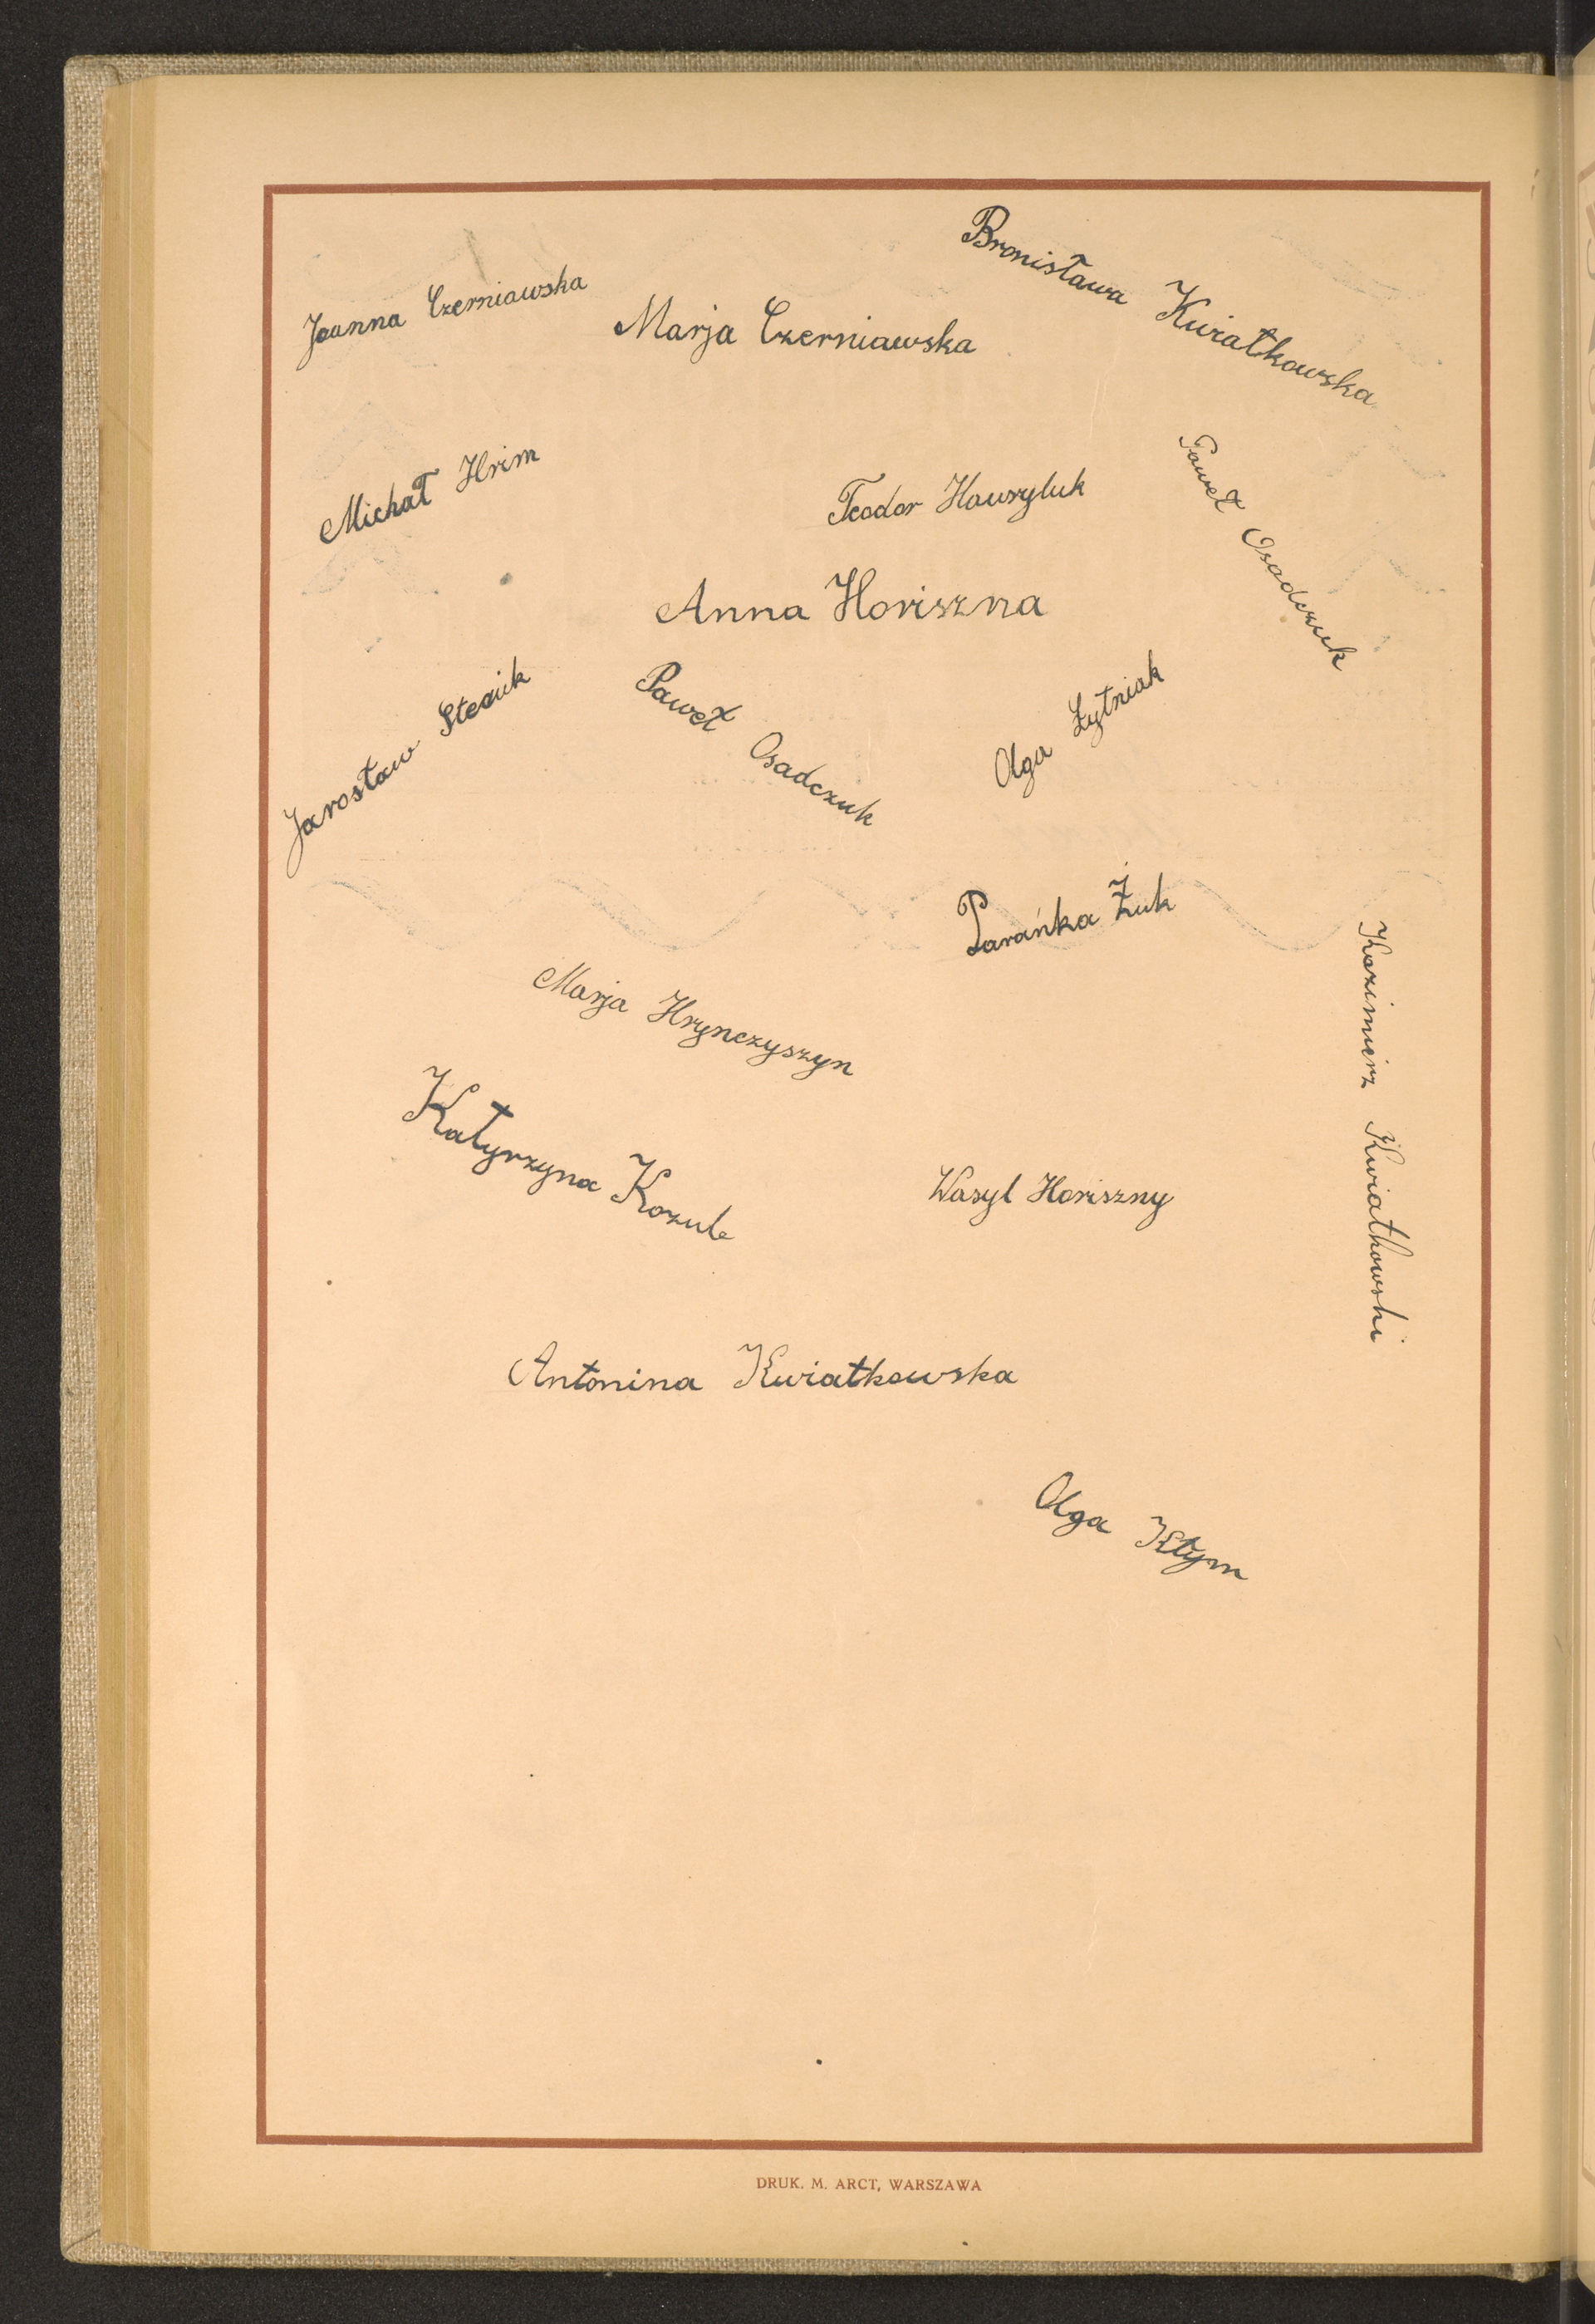 Joanna Czerniawska
Marja Czerniawska
Bronisława Kwiatkowska
Michał Hrim
Teodor Hawryluk
Paweł Osadczuk
Anna Horiszna
Jarosław Stecuik
Paweł Osadczuk
Olga Żytniak
Parańka Żuk
Kazimierz Kwiatkowski
Marja Hrynczyszyn
Katyrzyna Kozub
Wasyl Horiszny
Antonina Kwiatkowska
Olga Kłym
DRUK. M. ARCT, WARSZAWA